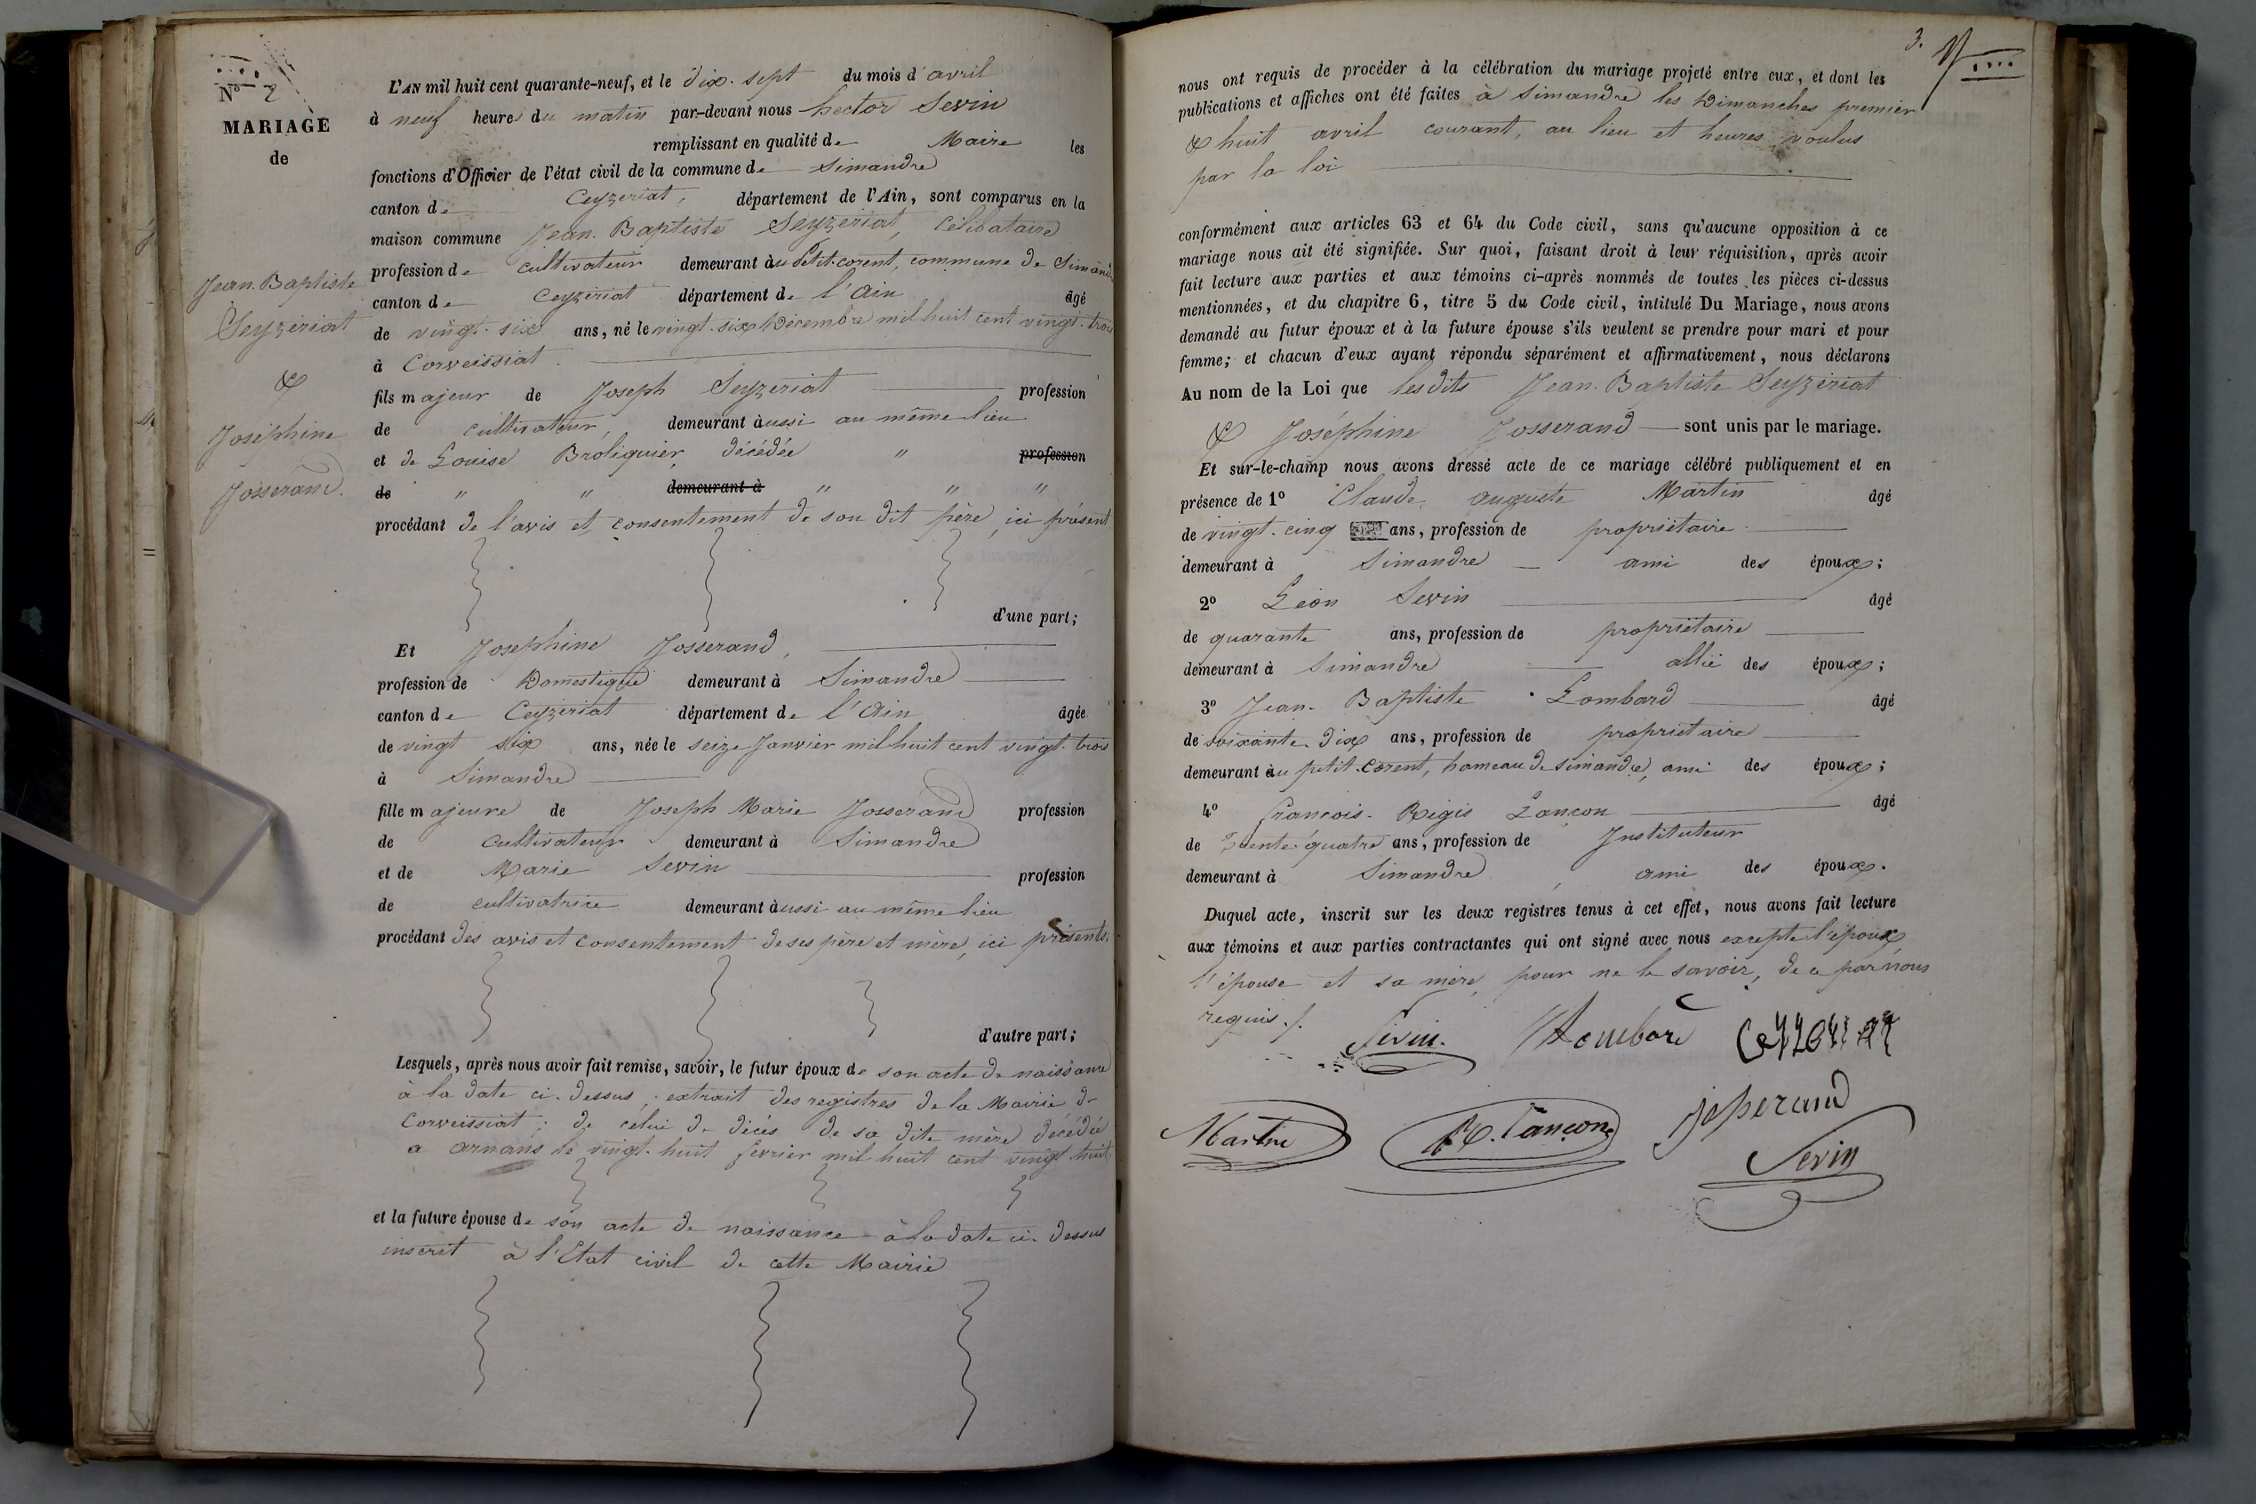 N° 2
MARIAGE
de
Jean-Baptiste
Seyzériat
&
Joséphine
Josserand.
L'AN mil huit cent quarante-neuf, et le dix-sept du mois d'avril
à neuf heures du matin par-devant nous hector Sevin
remplissant en qualité de Maire les
fonctions d'Officier de l'état civil de la commune de Simandre
canton de Ceyzeriat, département de l'Ain, sont comparus en la
maison commune Jean-Baptiste Seyzeriat, célibataire
profession de cultivateur demeurant au Petit-corent, commune de Simandre
canton de Ceyzeriat département de l'Ain âgé
de vingt-six ans, né le vingt-six Décembre mil huit cent vingt-trois
à Corveissiat
fils majeur de Joseph Seyzeriat profession
de cultivateur, demeurant aussi au même lieu
et de Louise Broliquier, décédée " profession
de " " demeurant à " " "
procédant de l'avis et consentement de son dit père, ici présent
d'une part;
Et Josephine Josserand,
profession de Domestique demeurant à Simandre
canton de Ceyzeriat département de l'Ain âgée
de vingt six ans, née le seize Janvier mil huit cent vingt-trois
à Simandre
fille majeure de Joseph Marie Josserand profession
de cultivateur demeurant à Simandre
et de Marie Sevin profession
de cultivatrice demeurant aussi au même lieu
procédant des avis et consentement de ses père et mère, ici présents.
d'autre part;
Lesquels, après nous avoir fait remise, savoir, le futur époux de son acte de naissance
à la date ci-dessus, extrait des registres de la Mairie de
Corveissiat; de celui de décès de sa dite mère décédée
a arnans le vingt-huit fevrier mil huit cent vingt-huit
et la future épouse de son acte de naissance à la date ci-dessus
inscrit à l'Etat civil de cette Mairie
3.
nous ont requis de procéder à la célébration du mariage projeté entre eux, et dont les
publications et affiches ont été faites à Simandre les Dimanches premier
& huit avril courant, au lieu et heures voulus
par la loi
conformément aux articles 63 et 64 du Code civil, sans qu'aucune opposition à ce
mariage nous ait été signifiée. Sur quoi, faisant droit à leur réquisition, après avoir
fait lecture aux parties et aux témoins ci-après nommés de toutes les pièces ci-dessus
mentionnées, et du chapitre 6, titre 5 du Code civil, intitulé Du Mariage, nous avons
demandé au futur époux et à la future épouse s'ils veulent se prendre pour mari et pour
femme; et chacun d'eux ayant répondu séparément et affirmativement, nous déclarons
Au nom de la Loi que lesdits Jean-Baptiste Seyzériat
& Joséphine Josserand sont unis par le mariage.
Et sur-le-champ nous avons dressé acte de ce mariage célébré publiquement et en
présence de 1° Claude auguste Martin âgé
de vingt-cinq ans, profession de propriétaire
demeurant à Simandre ami des époux;
2° Léon Sevin âgé
de quarante ans, profession de propriétaire
demeurant à Simandre allié des époux;
3° Jean-Baptiste Lombard âgé
de soixante-dix ans, profession de propriétaire
demeurant au petit-corent, hameau de simandre, ami des époux;
4° françois-Régis Lançon âgé
de trente-quatre ans, profession de Instituteur
demeurant à Simandre, ami des époux.
Duquel acte, inscrit sur les deux registres tenus à cet effet, nous avons fait lecture
aux témoins et aux parties contractantes qui ont signé avec nous excepté l'époux
l'épouse et sa mère, pour ne le savoir, de ce par nous
requis./.
Sevin. Lombard Ceyzeriat
Martin R. Lançon Josserand
Sevin